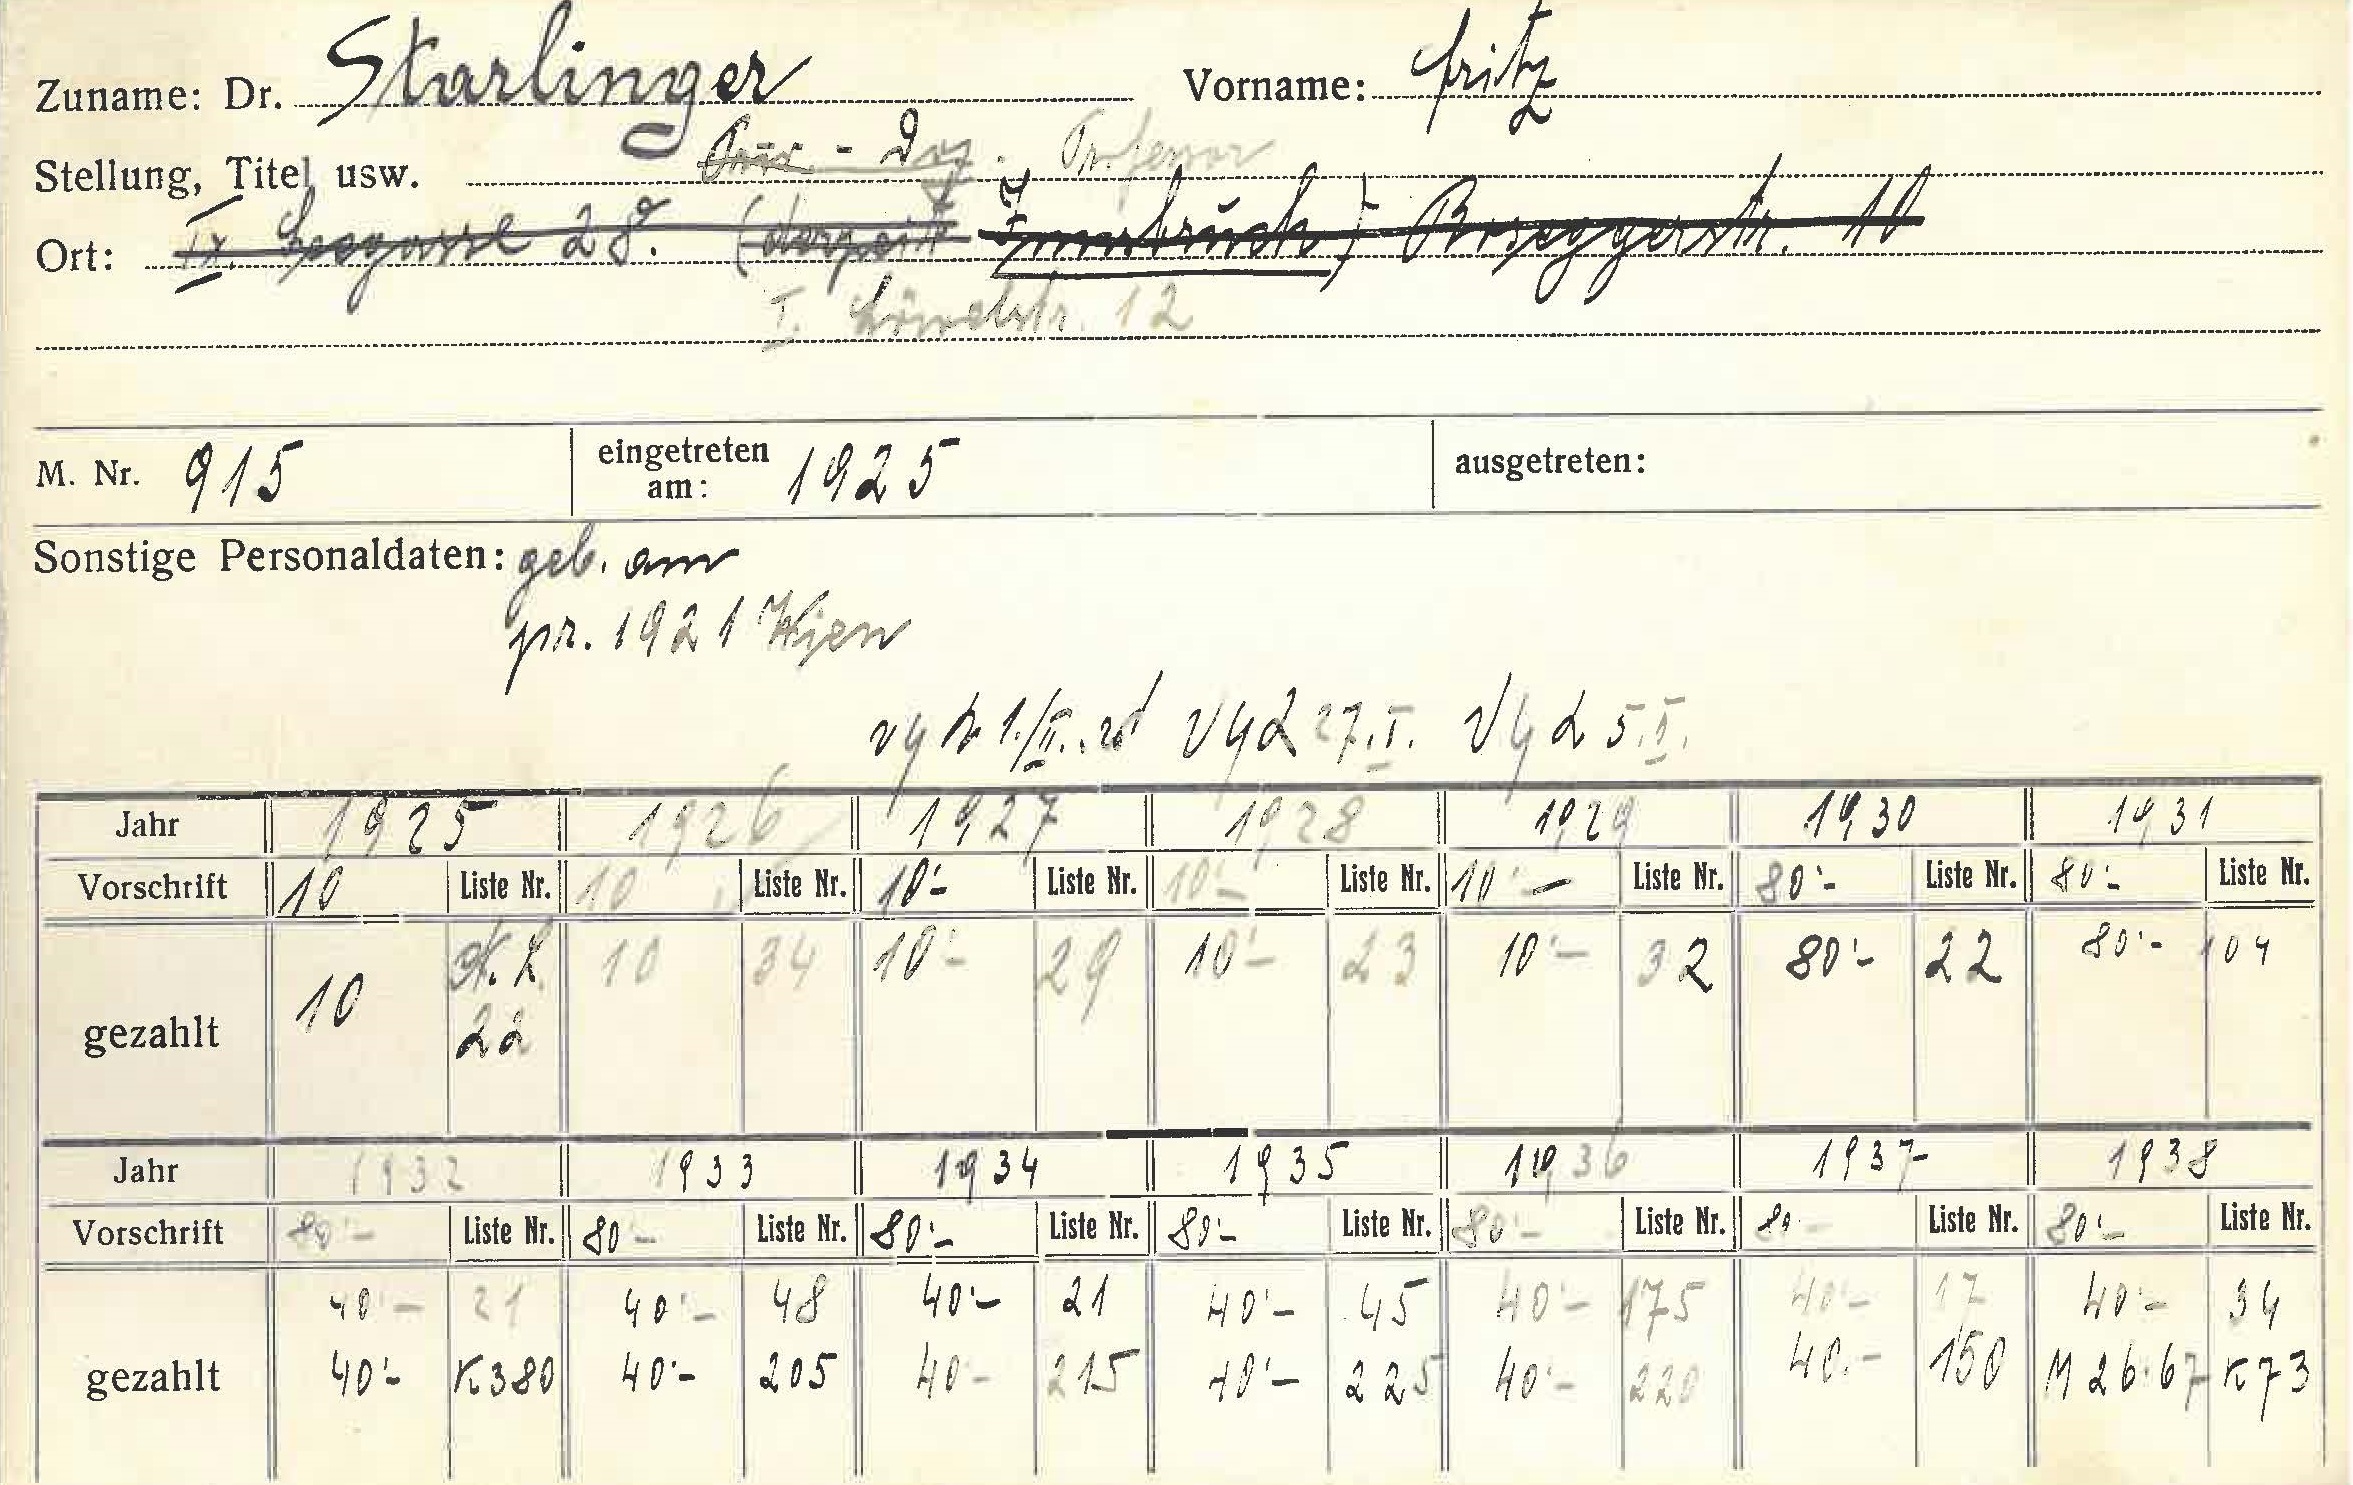 Zuname: Dr. Starlinger Vorname: Fritz
Stellung, Titel usw. Priv. - Doz. Professor
Ort: IX. Seegasse 28. (derzeit Innsbruck) Roseggerstr. 10
I. Löwelstr. 12
M. Nr. 915 eingetreten am: 1925 ausgetreten:
Sonstige Personaldaten: geb. am
pr. 1921 Wien
27.I. 5.I.
Jahr 1925 1926 1927 1928 1929 1930 1931
Vorschrift 10 Liste Nr. 10 Liste Nr. 10'- Liste Nr. 10'- Liste Nr. 10'- Liste Nr. 80'- Liste Nr. 80'- Liste Nr.
gezahlt 10 22 10 34 10'- 29 10'- 23 10'- 32 80'- 22 80'- 104
Jahr 1932 1933 1934 1935 1936 1937 1938
Vorschrift 80'- Liste Nr. 80'- Liste Nr. 80'- Liste Nr. 80'- Liste Nr. 80'- Liste Nr. 80.- Liste Nr. 80'- Liste Nr.
40'- 21 40'- 48 40'- 21 40'- 45 40'- 175 40'- 17 40'- 34
gezahlt 40'- K380 40'- 205 40'- 215 40'- 225 40'- 220 40.- 150 M 26.67 K73